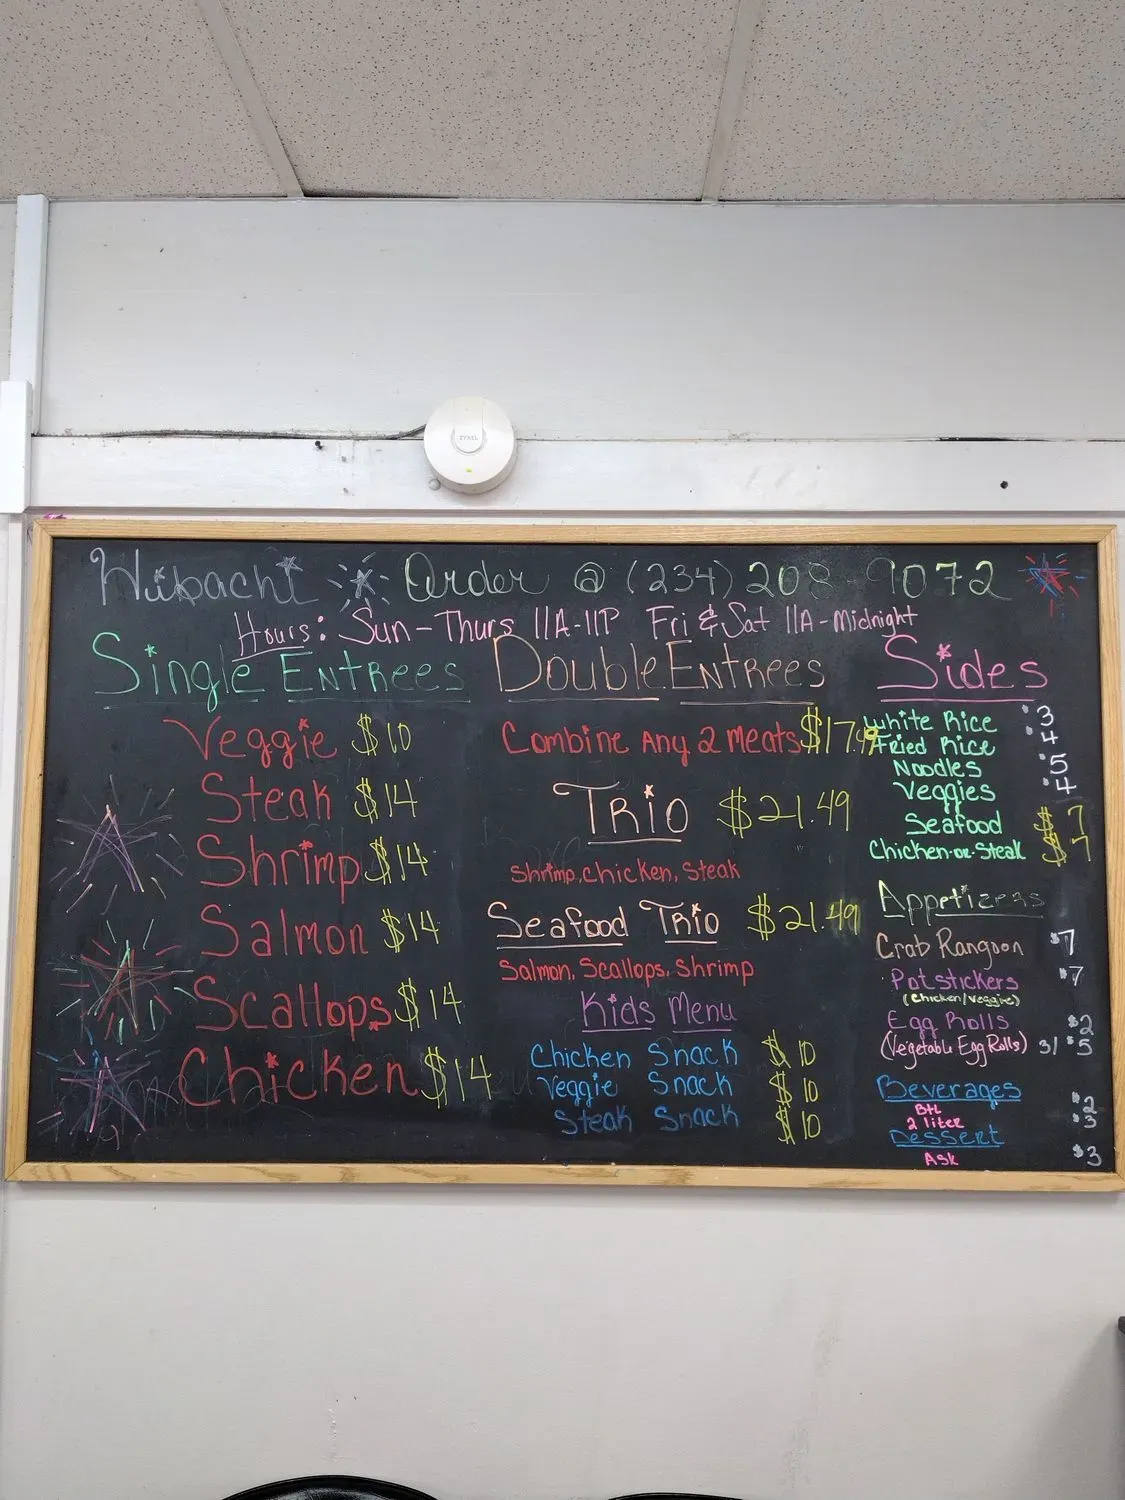 ZYXEL
Hibachi Order @ (234) 208-9072
Hours: Sun-Thurs 11A-11P Fri & Sat 11A-Midnight
Single Entrees
Veggie $10
Steak $14
Shrimp $14
Salmon $14
Scallops $14
Chicken $14
Double Entrees
Combine Any 2 meats $17.49
Trio $21.49
Shrimp, Chicken, Steak
Seafood Trio $21.49
Salmon, Scallops, Shrimp
Kids Menu
Chicken Snack $10
Veggie Snack $10
Steak Snack $10
Sides
White Rice $3
Fried Rice $4
Noodles $5
Veggies $4
Seafood $7
Chicken-or-Steak $7
Appetizers
Crab Rangoon $7
Potstickers $7
(Chicken/Veggie)
Egg Rolls $2
(Vegetable Egg Rolls) 3/ $5
Beverages
Btl $2
2 liter $3
Dessert
Ask $3